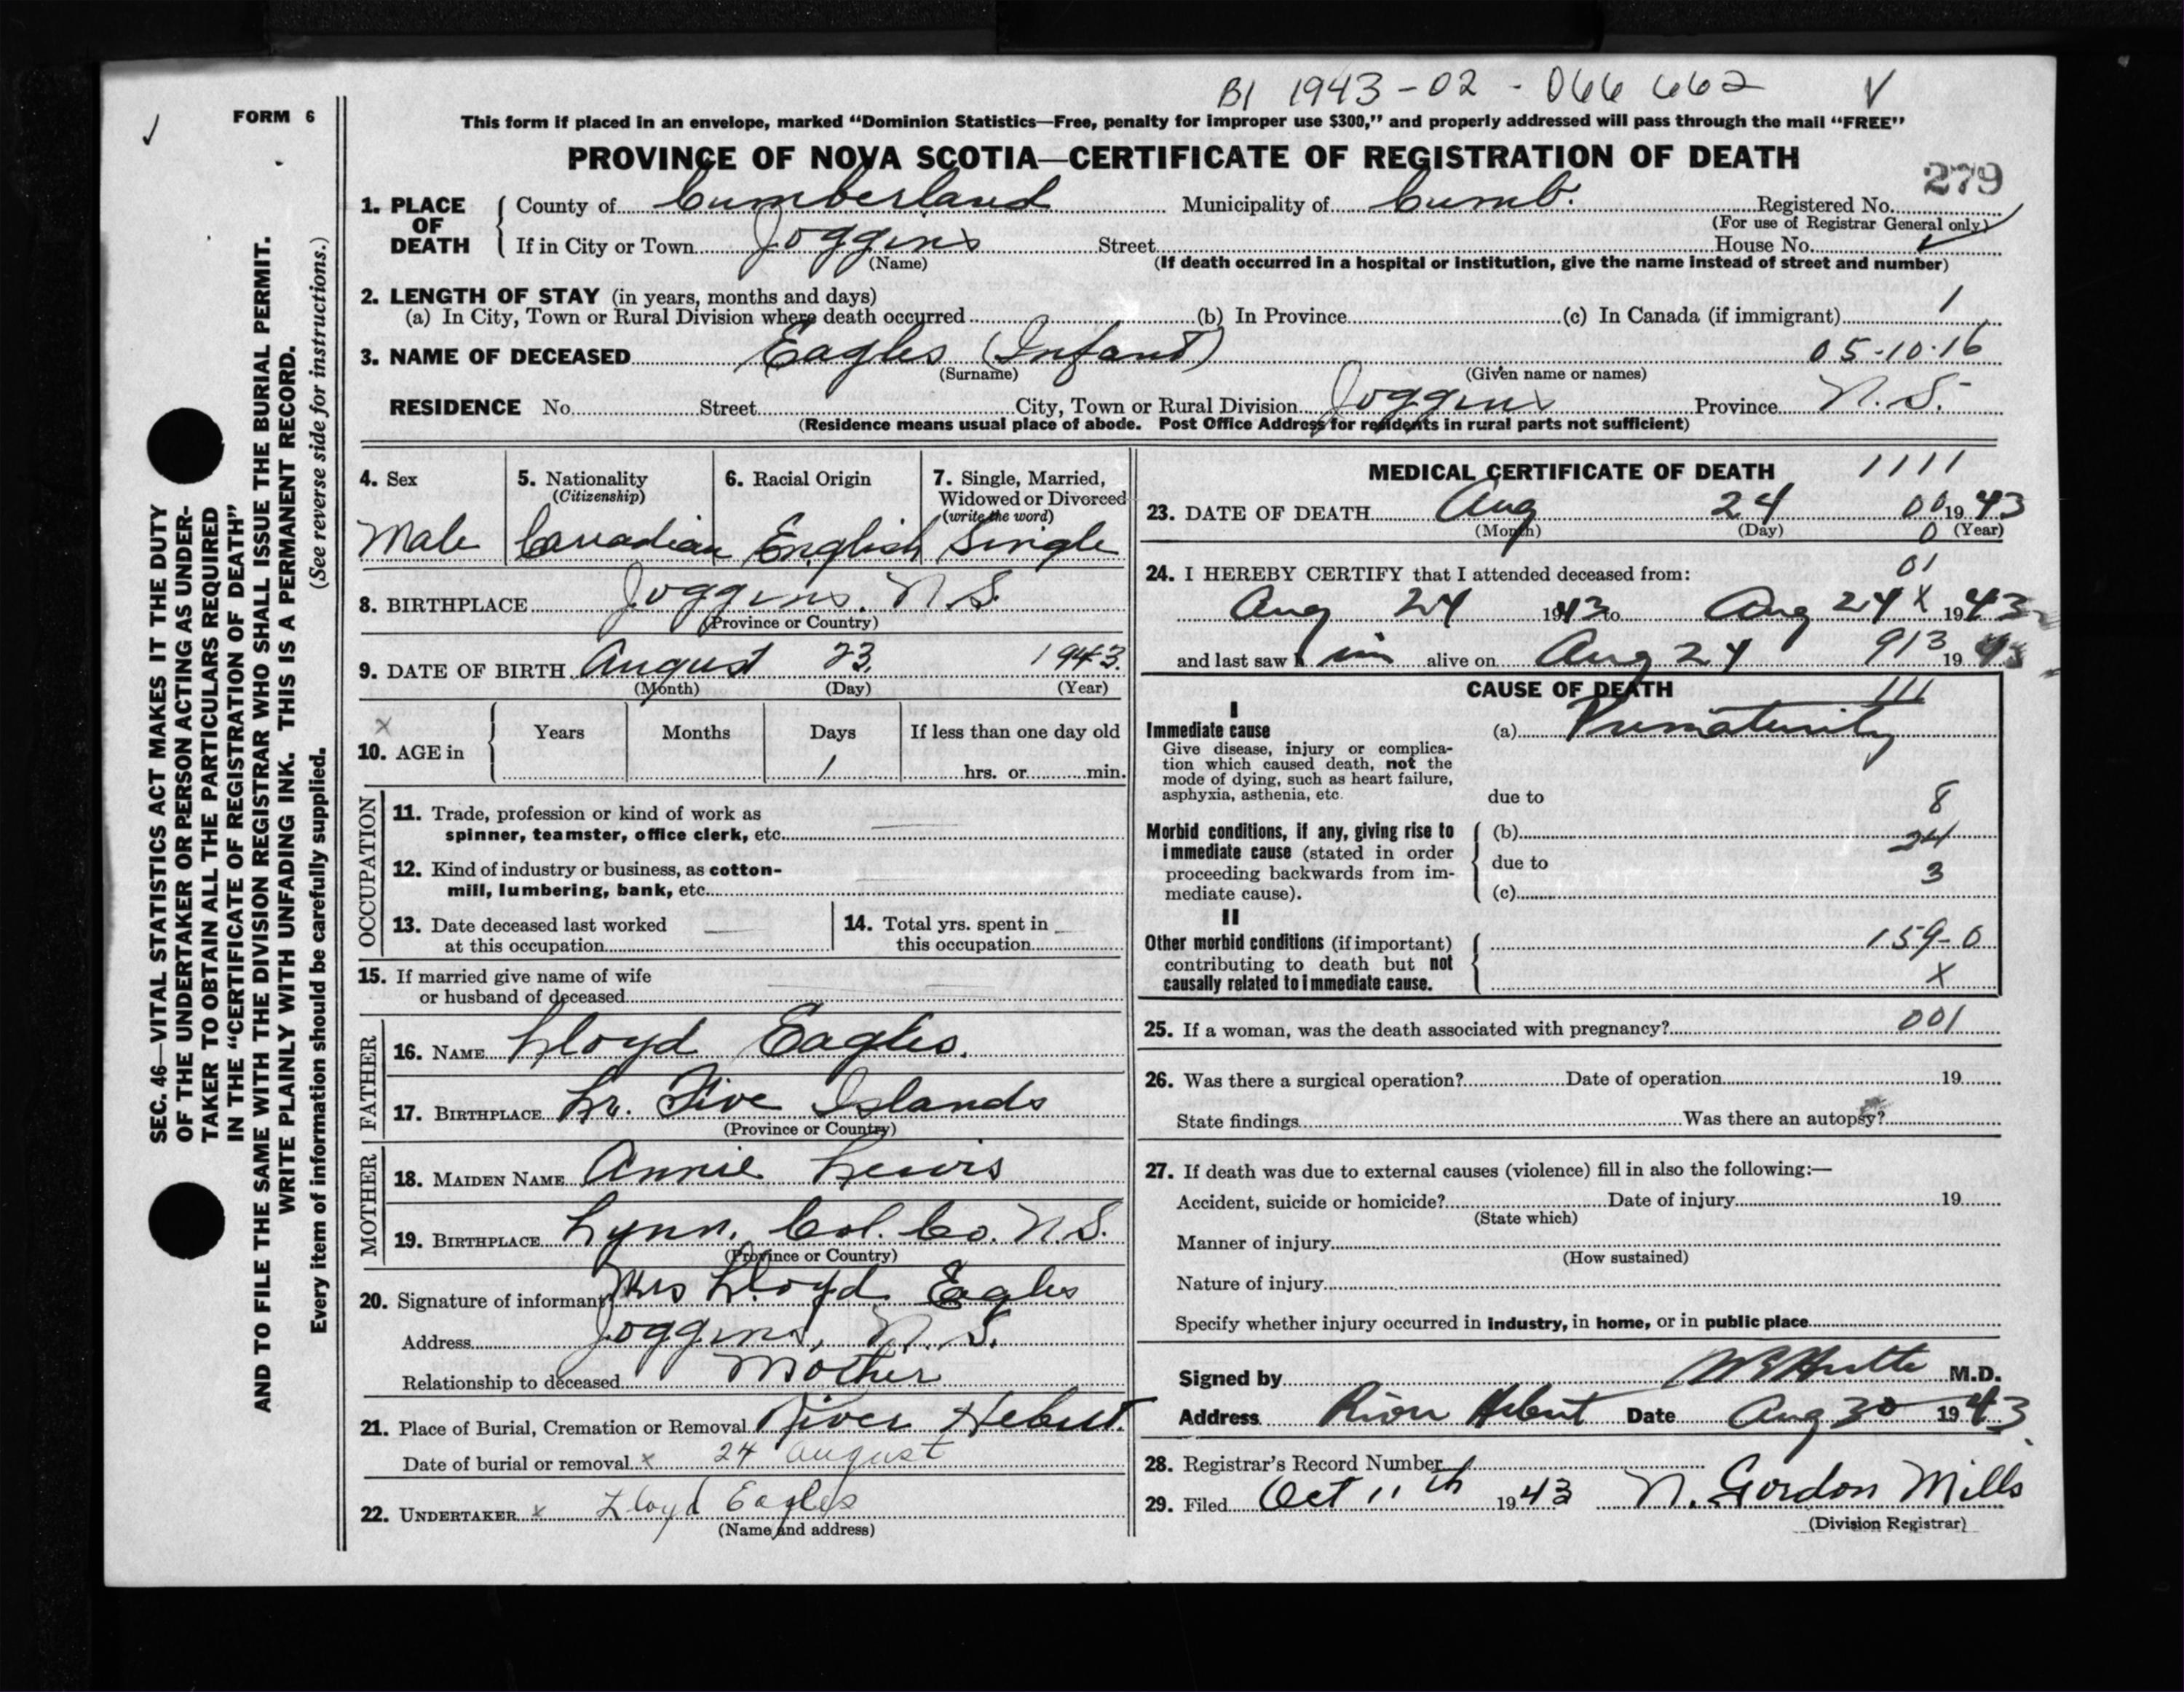 BI 1943-02-066 662 V
FORM 6
This form if placed in an envelope, marked "Dominion Statistics—Free, penalty for improper use $300," and properly addressed will pass through the mail "FREE"
PROVINCE OF NOVA SCOTIA—CERTIFICATE OF REGISTRATION OF DEATH
279
1. PLACE OF DEATH County of Cumberland Municipality of Cumb. Registered No.
(For use of Registrar General only)
If in City or Town Joggins Street House No.
(Name) (If death occurred in a hospital or institution, give the name instead of street and number)
2. LENGTH OF STAY (in years, months and days)
(a) In City, Town or Rural Division where death occurred (b) In Province (c) In Canada (if immigrant) 1
3. NAME OF DECEASED Eagles (Infant) 05-10-16
(Surname) (Given name or names)
RESIDENCE No. Street City, Town or Rural Division Joggins Province N.S.
(Residence means usual place of abode. Post Office Address for residents in rural parts not sufficient)
4. Sex Male
5. Nationality (Citizenship) Canadian
6. Racial Origin English
7. Single, Married, Widowed or Divorced (write the word) Single
8. BIRTHPLACE Joggins. N.S.
(Province or Country)
9. DATE OF BIRTH August 23, 1943.
(Month) (Day) (Year)
x
10. AGE in Years Months Days If less than one day old
1 hrs. or min.
OCCUPATION
11. Trade, profession or kind of work as
spinner, teamster, office clerk, etc.
12. Kind of industry or business, as cotton-
mill, lumbering, bank, etc.
13. Date deceased last worked
at this occupation
14. Total yrs. spent in
this occupation
15. If married give name of wife
or husband of deceased
FATHER
16. NAME Lloyd Eagles.
17. BIRTHPLACE Lr. Five Islands
(Province or Country)
MOTHER
18. MAIDEN NAME Annie Lewis
19. BIRTHPLACE Lynn. Col. Co. N.S.
(Province or Country)
20. Signature of informant Mrs Lloyd Eagles
Address Joggins, N.S.
Relationship to deceased Mother
21. Place of Burial, Cremation or Removal River Hebert.
Date of burial or removal x 24 August
22. UNDERTAKER x Lloyd Eagles
(Name and address)
MEDICAL CERTIFICATE OF DEATH 1111
23. DATE OF DEATH Aug 24 00 1943
(Month) (Day) 0 (Year)
24. I HEREBY CERTIFY that I attended deceased from: 01
Aug 24 1943 to Aug 24 X 1943
and last saw h im alive on Aug 24 913 1943
CAUSE OF DEATH 111
I
Immediate cause (a) Prematurity
Give disease, injury or complica-
tion which caused death, not the
mode of dying, such as heart failure,
asphyxia, asthenia, etc. due to 8
Morbid conditions, if any, giving rise to (b) 24
immediate cause (stated in order due to
proceeding backwards from im- 3
mediate cause). (c)
II
Other morbid conditions (if important) 159-0
contributing to death but not
causally related to immediate cause. X
25. If a woman, was the death associated with pregnancy? 001
26. Was there a surgical operation? Date of operation 19
State findings Was there an autopsy?
27. If death was due to external causes (violence) fill in also the following:—
Accident, suicide or homicide? Date of injury 19
(State which)
Manner of injury
(How sustained)
Nature of injury
Specify whether injury occurred in industry, in home, or in public place
Signed by M.D.
Address River Hebert Date Aug 30 1943
28. Registrar's Record Number
29. Filed Oct 11th 1943 N. Gordon Mills
(Division Registrar)
SEC. 46—VITAL STATISTICS ACT MAKES IT THE DUTY
OF THE UNDERTAKER OR PERSON ACTING AS UNDER-
TAKER TO OBTAIN ALL THE PARTICULARS REQUIRED
IN THE "CERTIFICATE OF REGISTRATION OF DEATH"
AND TO FILE THE SAME WITH THE DIVISION REGISTRAR WHO SHALL ISSUE THE BURIAL PERMIT.
WRITE PLAINLY WITH UNFADING INK. THIS IS A PERMANENT RECORD.
Every item of information should be carefully supplied. (See reverse side for instructions.)